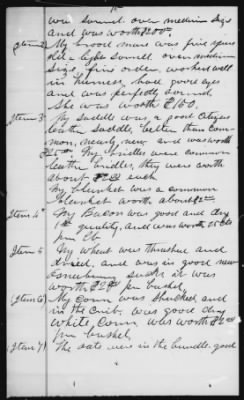 was sound, over medium size
and was worth $200.00
(Item 2) My brood mare was five years
old a light sorrell, over medium
size, fine order, worked well
in harness, had good eyes
and was perfectly sound
She was worth $160.
Item 3 My saddle was a good citizens
leather saddle, better than com-
mon, nearly new and was worth
My bridles were common
leather bridles, they were worth
about each
My blanket was a common
blanket worth about
Item 4 My Bacon was good and dry
1st quality, and was worth
per lb.
Item 5 My wheat was threshed and
dried, and was in good new
sacks it was
worth per bushel
(Item 6) My Corn was shucked and
in the Crib. was good dry
white Corn was worth
per bushel,
(Item 7) The oats were in the bundle, good